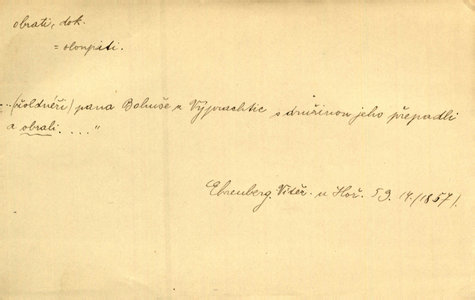 obrati, dok.
= oloupiti.
"..(žoldnéři) pana Bohuše z Výprachtic s družinou jeho přepadli
a obrali. ...."
Ehrenberg. Vítěz. u Hoř. 59. 14./1857/.